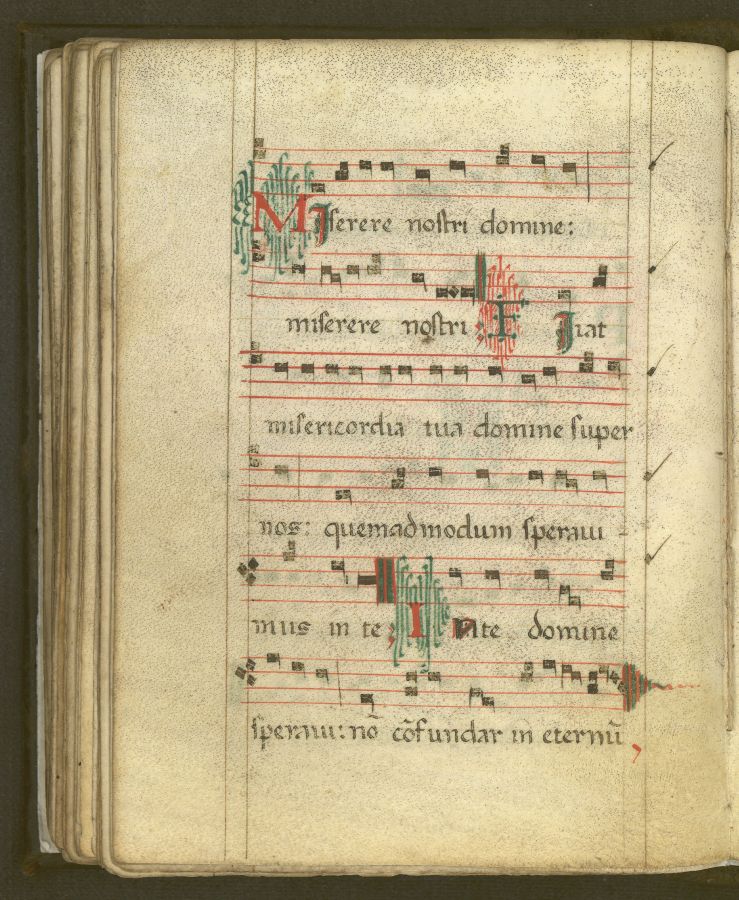 Miſerere noſtri domine:
miſerere noſtri: Fiat
miſericordia tua domine ſuper
nos: quemadmodum ſperaui-
mus in te: In te domine
ſperaui: nō cōfundar in eternū